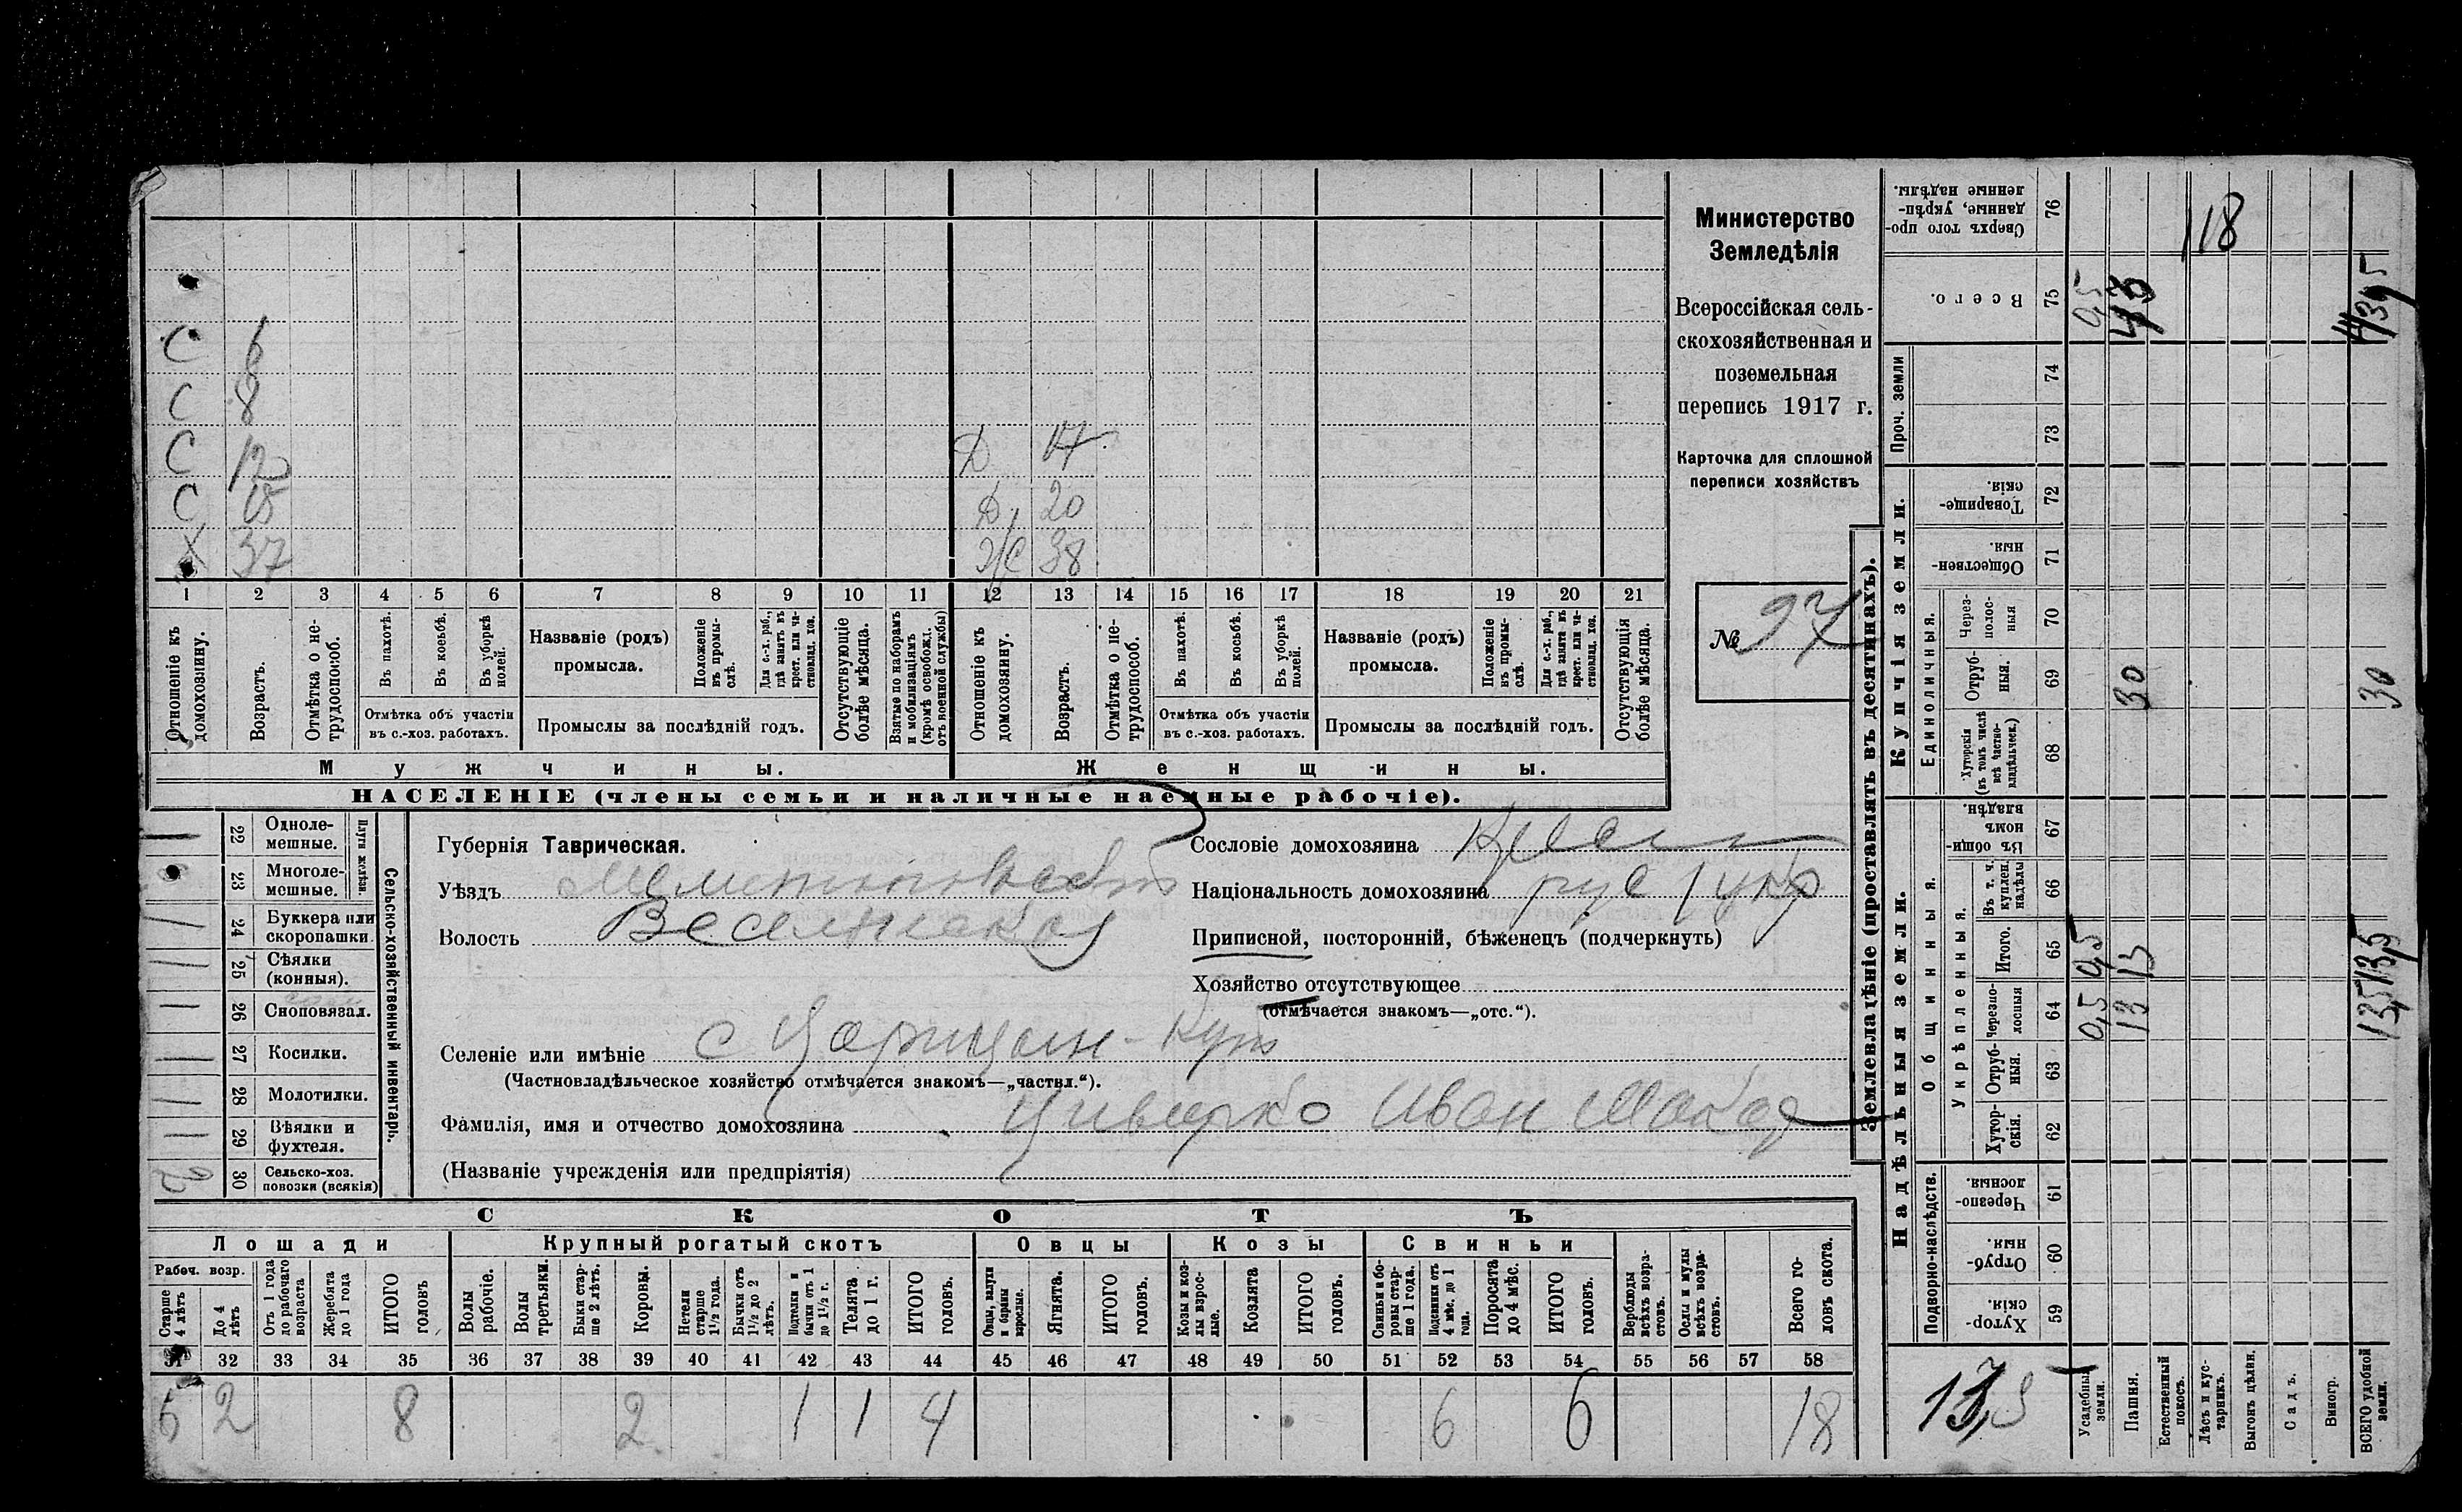 Министерство
Земледѣлія
Всероссійская сель-
скохозяйственная и
поземельная
перепись 1917 г.
Карточка для сплошной
переписи хозяйствъ
№ 97
С 6
С 8
С 12 Д 17
С 15 Д 20
Х 37 Ж 38
1 2 3 4 5 6 7 8 9 10 11 12 13 14 15 16 17 18 19 20 21
Отношеніе къ домохозяину.
Возрастъ.
Отмѣтка о не-трудоспособ.
Въ пахотѣ.
Въ косьбѣ.
Въ уборкѣ полей.
Отмѣтка объ участіи
въ с.-хоз. работахъ.
Названіе (родъ)
промысла.
Положеніе въ промы-слѣ.
Для с.-х. раб., гдѣ занятъ въ крест. или ча-стновлад. хоз.
Промыслы за послѣдній годъ.
Отсутствующіе болѣе мѣсяца.
Взятые по наборамъ и мобилизаціямъ (кромѣ освобожд. отъ военной службы)
Отношеніе къ домохозяину.
Возрастъ.
Отмѣтка о не-трудоспособ.
Въ пахотѣ.
Въ косьбѣ.
Въ уборкѣ полей.
Отмѣтка объ участіи
въ с.-хоз. работахъ.
Названіе (родъ)
промысла.
Положеніе въ промы-слѣ.
Для с.-х. раб., гдѣ занята въ крест. или ча-стновлад. хоз.
Промыслы за послѣдній годъ.
Отсутствующія болѣе мѣсяца.
Мужчины.
Женщины.
НАСЕЛЕНІЕ (члены семьи и наличные наемные рабочіе).
Сельско-хозяйственный инвентарь.
Плуги желѣзн.
22 Одноле-мешные.
23 Многоле-мешные.
24 Буккера или скоропашки.
25 Сѣялки (конныя).
26 Сноповязал.
27 Косилки.
28 Молотилки.
29 Вѣялки и фухтеля.
30 Сельско-хоз. повозки (всякія)
2
Губернія Таврическая.
Уѣздъ Мелитопольск
Волость Веселянская
Сословіе домохозяина
Національность домохозяина рус / укр
Приписной, посторонній, бѣженецъ (подчеркнуть)
Хозяйство отсутствующее
(отмѣчается знакомъ—„отс.“).
Селеніе или имѣніе с Царицын-Кут
(Частновладѣльческое хозяйство отмѣчается знакомъ—„частвл.“).
Фамилія, имя и отчество домохозяина Цивирко Иван Макар
(Названіе учрежденія или предпріятія)
СКОТЪ
Лошади
Крупный рогатый скотъ
Овцы
Козы
Свиньи
Рабоч. возр.
Старше 4 лѣтъ
До 4 лѣтъ
Отъ 1 года до рабочаго возраста
Жеребята до 1 года
ИТОГО головъ
Волы рабочіе.
Волы третьяки.
Быки стар-ше 2 лѣтъ.
Коровы.
Нетели старше 1½ года.
Бычки отъ 1½ до 2 лѣтъ.
Подтелки и бычки отъ 1 до 1½ г.
Телята до 1 г.
ИТОГО головъ.
Овцы, валухи и бараны взрослые.
Ягнята.
ИТОГО головъ.
Козы и коз-лы взрос-лые.
Козлята
ИТОГО головъ.
Свиньи и бо-ровы стар-ше 1 года.
Подсвинки отъ 4 мѣс. до 1 года.
Поросята до 4 мѣс.
ИТОГО головъ.
Верблюды всѣхъ возра-стовъ.
Ослы и мулы всѣхъ возра-стовъ.
Всего го-ловъ скота.
31 32 33 34 35 36 37 38 39 40 41 42 43 44 45 46 47 48 49 50 51 52 53 54 55 56 57 58
6 2 8 2 1 1 4 6 6 18
Землевладѣніе (проставлять въ десятинахъ).
Надѣльныя земли.
Купчія земли.
Проч. земли
Подворно-наслѣдств.
Общинныя.
Укрѣпленныя.
Единоличныя.
Хутор-скія. 59
Отруб-ныя. 60
Черезпо-лосныя 61
Хутор-скія. 62
Отруб-ныя. 63
Черезпо-лосныя 64 0,5 13 13,5
Итого. 65 0,5 13 13,5
Въ т. ч. куплен. надѣлы 66
Въ общи-номъ владѣн. 67
Хуторскія (въ томъ числѣ всѣ частно-владѣльческ.) 68
Отруб-ныя. 69 30 30
Через-полос-ныя 70
Обществен-ныя. 71
Товарище-скія. 72
73
74
Всего. 75 0,5 43 43,5
Сверхъ того про-данные, укрѣп-ленные надѣлы. 76
118
13,5
Усадебныя земли.
Пашня.
Естественный покосъ.
Лѣсъ и кус-тарникъ.
Выгонъ цѣлин.
Садъ.
Виногр.
ВСЕГО удобной земли.